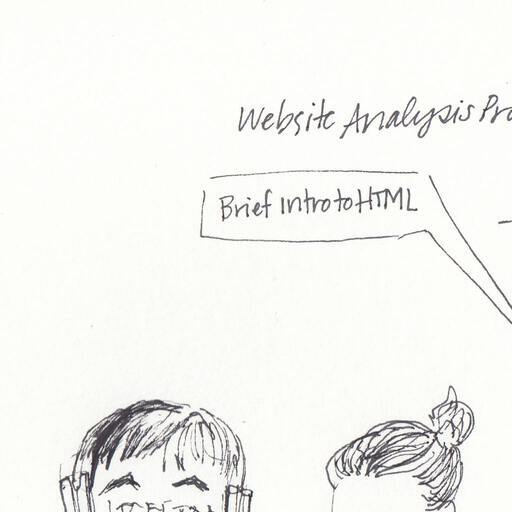 Website Analysis Pro
Brief intro to HTML